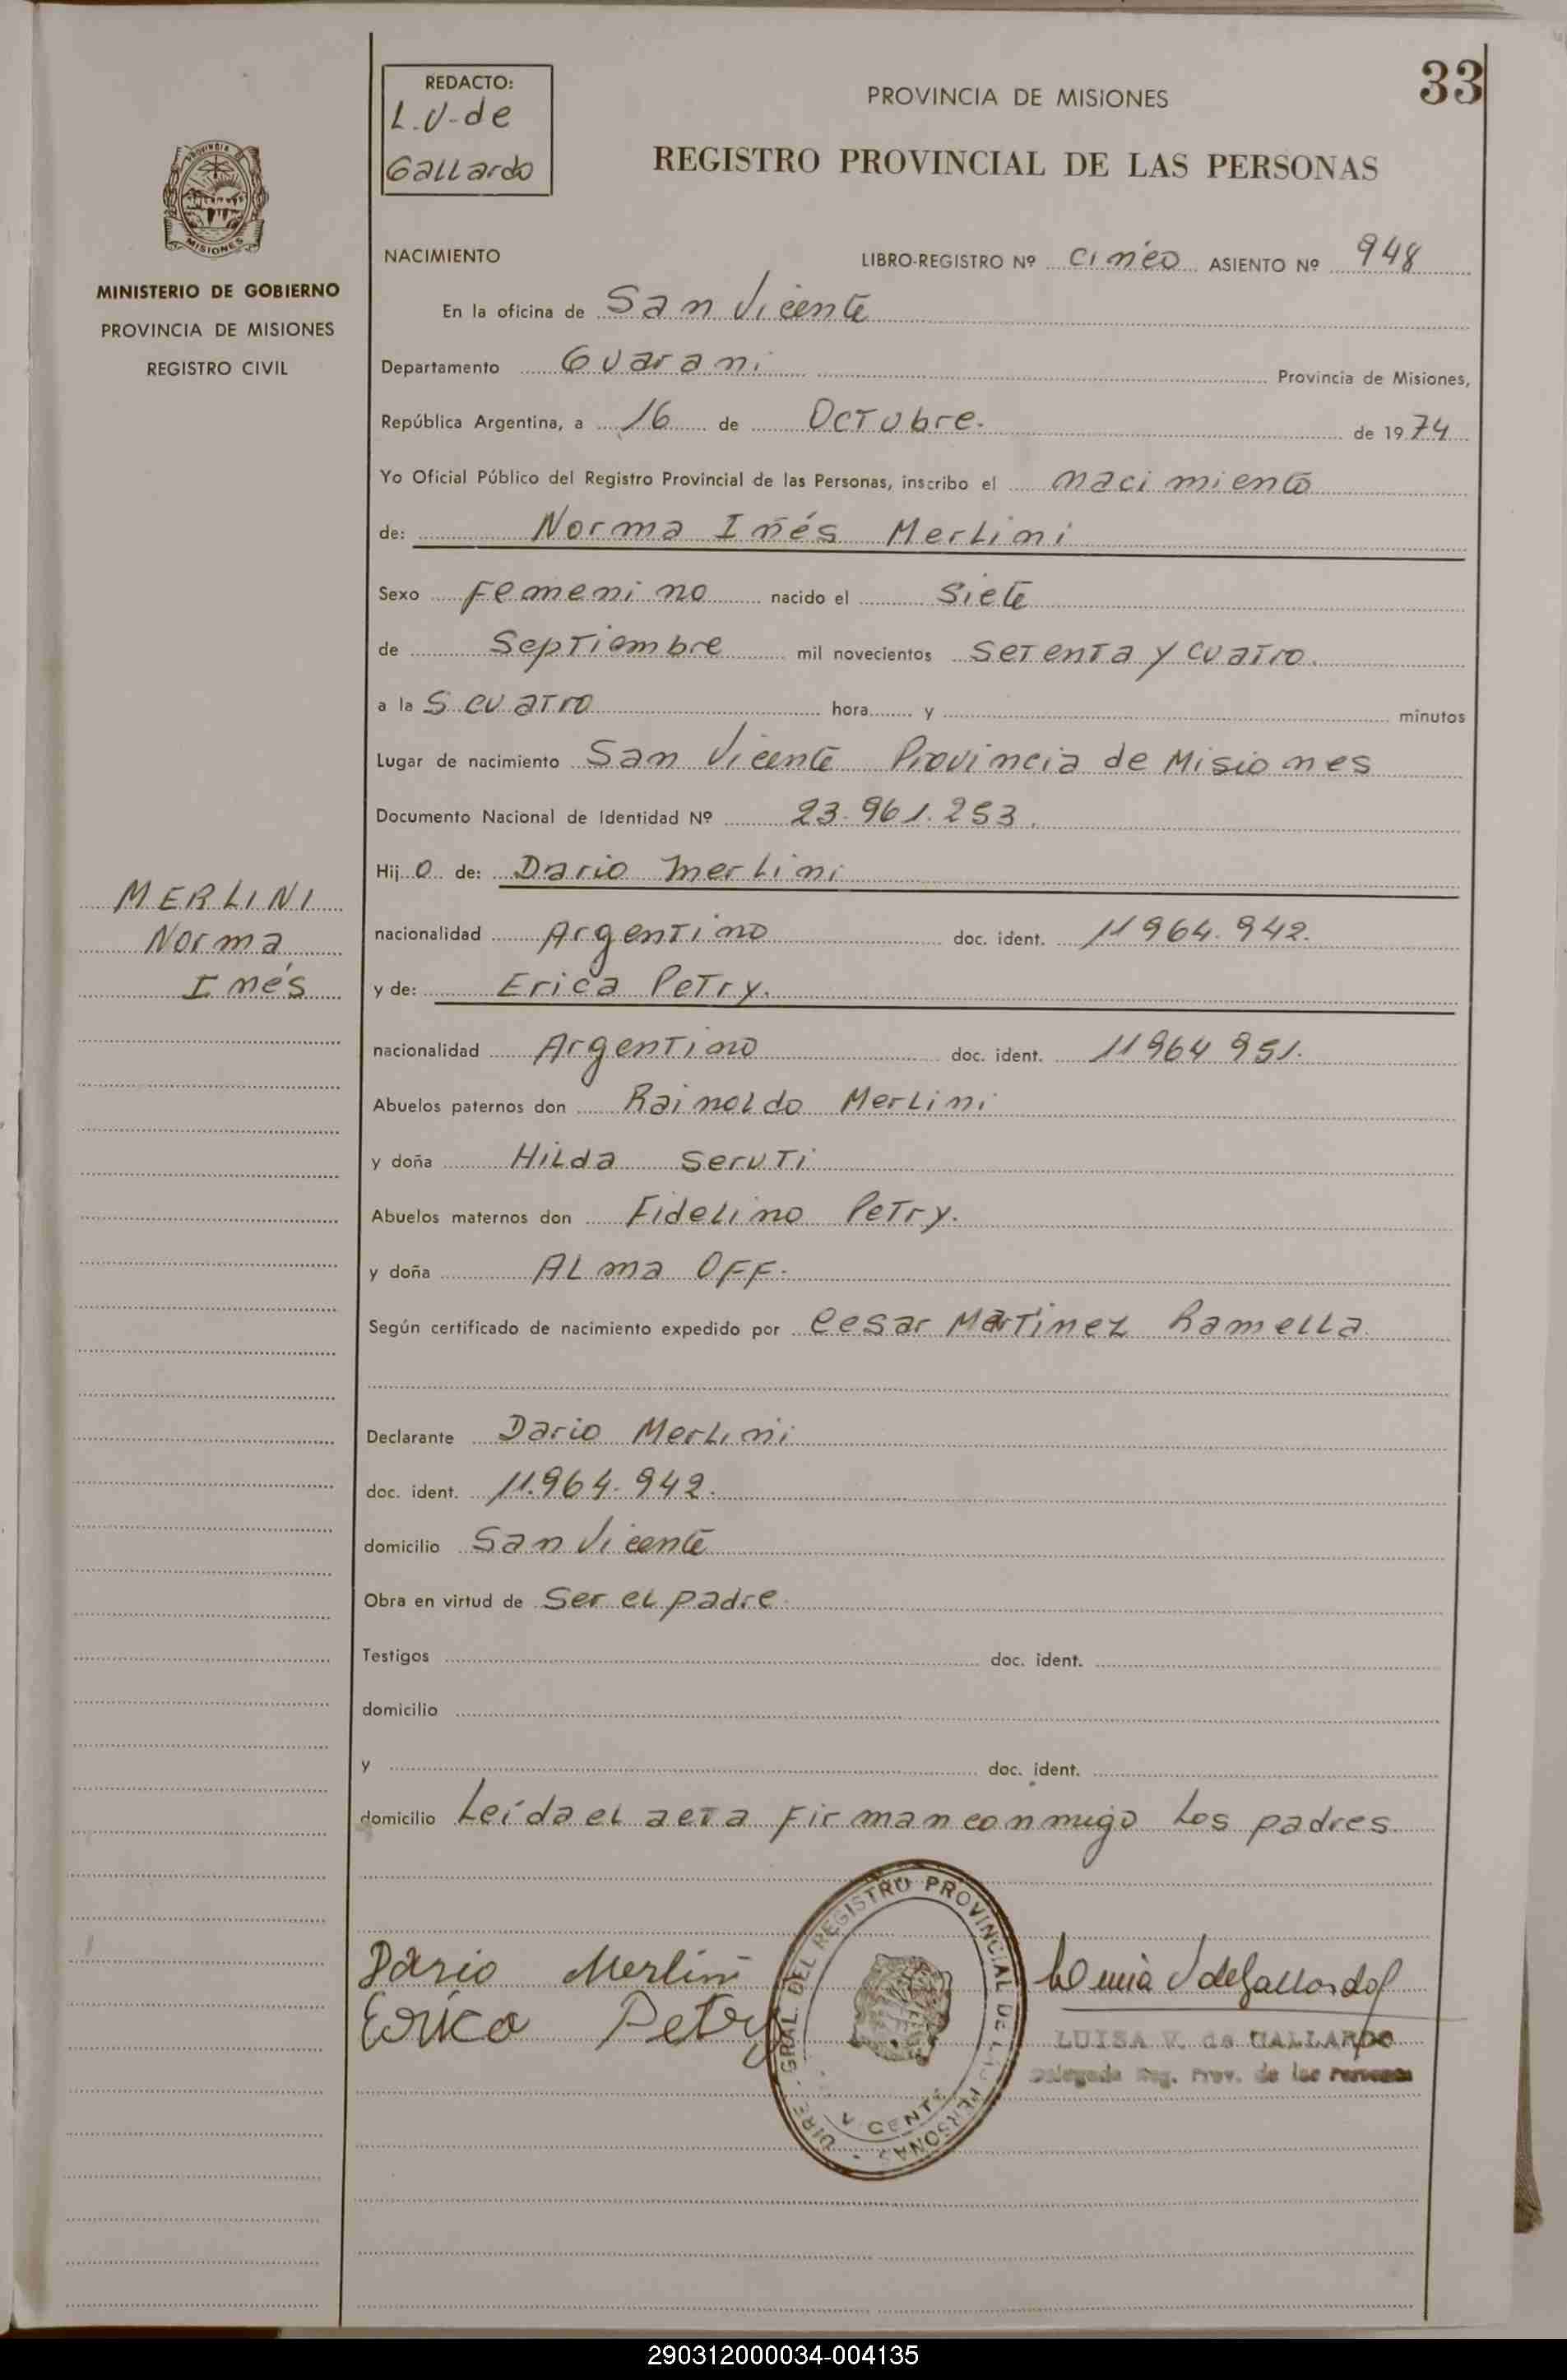 33
REDACTO:
L.V. de
Gallardo
PROVINCIA DE MISIONES
REGISTRO PROVINCIAL DE LAS PERSONAS
PROVINCIA
MISIONES
MINISTERIO DE GOBIERNO
PROVINCIA DE MISIONES
REGISTRO CIVIL
NACIMIENTO LIBRO-REGISTRO Nº cinco ASIENTO Nº 948
En la oficina de San Vicente
Departamento Guarani Provincia de Misiones,
República Argentina, a 16 de Octubre. de 1974
Yo Oficial Público del Registro Provincial de las Personas, inscribo el nacimiento
de: Norma Inés Merlini
Sexo Femenino nacido el Siete
de Septiembre mil novecientos Setenta y cuatro.
a las cuatro hora y minutos
Lugar de nacimiento San Vicente Provincia de Misiones
Documento Nacional de Identidad Nº 23.961.253.
Hijo de: Dario Merlini
MERLINI
Norma
Inés
nacionalidad Argentino doc. ident. 11964.942.
y de: Erica Petry.
nacionalidad Argentino doc. ident. 11964951.
Abuelos paternos don Rainoldo Merlini
y doña Hilda Seruti
Abuelos maternos don Fidelino Petry.
y doña Alma OFF.
Según certificado de nacimiento expedido por Cesar Martinez Ramella
Declarante Dario Merlini
doc. ident. 11.964.942.
domicilio San Vicente
Obra en virtud de Ser el padre
Testigos doc. ident.
domicilio
y doc. ident.
domicilio Leída el acta Firman conmigo los padres
Dario Merlini
Erica Petry
DIRE. GRAL. DEL REGISTRO PROVINCIAL DE LAS PERSONAS
V CENTE
LUISA V. de GALLARDO
Delegada Reg. Prov. de las Personas
290312000034-004135